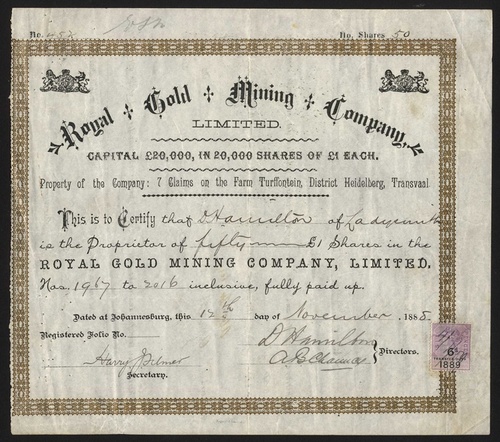 No. No. Shares 50
Royal Gold Mining Company,
LIMITED.
CAPITAL £20,000, IN 20,000 SHARES OF £1 EACH.
Property of the Company: 7 Claims on the Farm Turffontein, District Heidelberg, Transvaal
This is to Certify that D Hamilton of Ladysmith
is the Proprietor of fifty £1 Shares in the
ROYAL GOLD MINING COMPANY, LIMITED.
Nos. 1967 to 2016 inclusive, fully paid up.
Dated at Johannesburg, this 12th day of November 1888.
Registered Folio No.
D Hamilton
Directors.
Harry
Secretary.
6d
1889